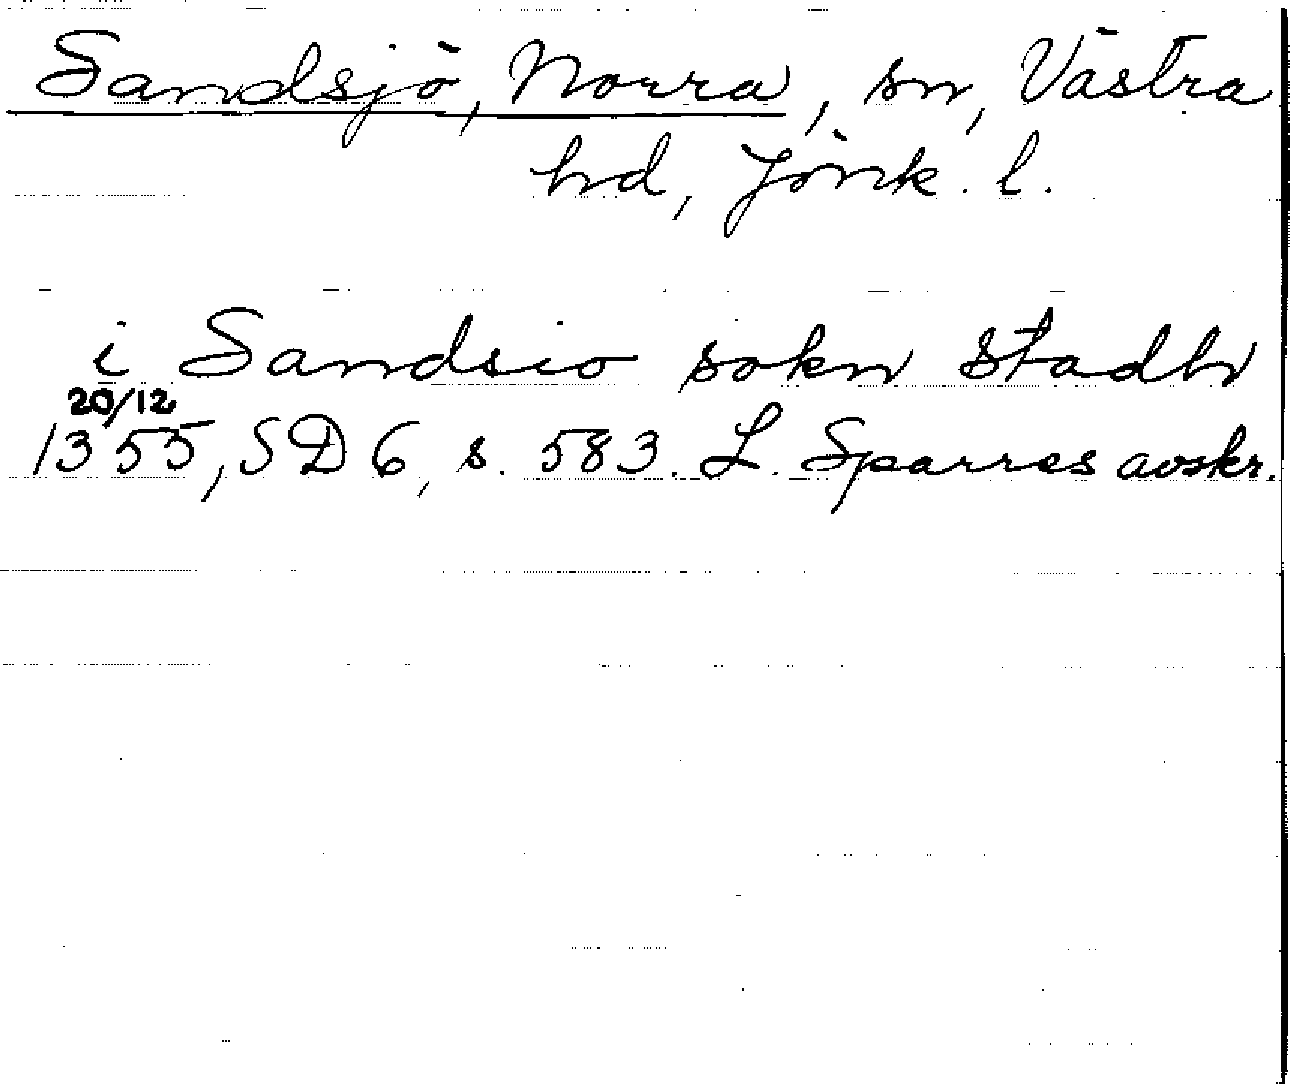 Sandsjö, Norra, sn, Västra
hd, Jönk. l.
i Sandsio sokn stadh
20/12
1355, SD 6, s. 583. L. Sparres avskr.